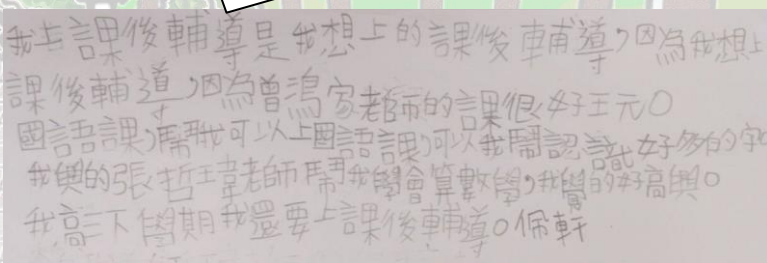 我去課後輔導是我想上的課後輔導,因為我想上
課後輔導,因為曾鴻家老師的課很好玩。
國語課,幫我可以上國語課,可以我幫認識好多的字。
我與的張哲瑋老師幫我學會算數學,我學的好高興。
我高三下學期我還要上課後輔導。佩軒